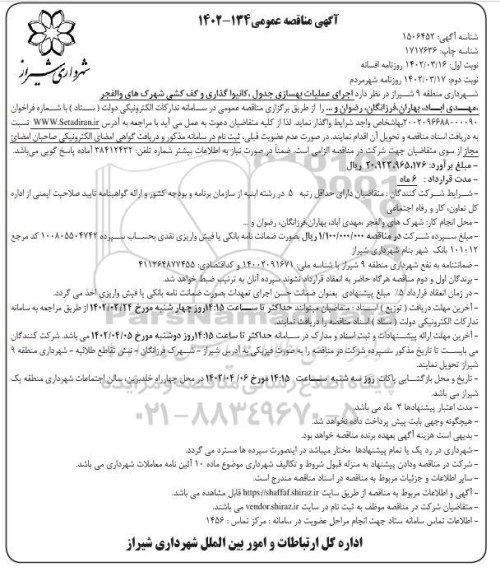 آگهی مناقصه عمومی ۱۳۴-۱۴۰۲
شهرداری شیراز
شناسه آگهی: ۱۵۰۶۴۵۲
شناسه چاپ: ۱۷۱۷۶۳۶
نوبت اول: ۱۴۰۲/۰۳/۱۶ روزنامه افسانه
نوبت دوم: ۱۴۰۲/۰۳/۱۷ روزنامه شهرمردم
شهرداری منطقه ۹ شیراز در نظر دارد اجرای عملیات بهسازی جدول ،کانیوا گذاری و کف کشی شهرک های والفجر
،مهدی آباد، بهاران،فرزانگان، رضوان و ... را از طریق برگزاری مناقصه عمومی در سامانه تدارکات الکترونیکی دولت ( ستاد ) با شماره فراخوان
۲۰۰۲۰۹۶۶۸۸۰۰۰۰۹۰ به اشخاص واجد شرایط واگذار نماید. لذا از کلیه متقاضیان دعوت به عمل می آید با مراجعه به آدرس WWW.Setadiran.ir نسبت
به دریافت اسناد مناقصه و تحویل آن اقدام نمایند. در صورت عدم عضویت قبلی، ثبت نام در سامانه مذکور و دریافت گواهی امضای الکترونیکی صاحبان امضای
مجاز از سوی متقاضیان جهت شرکت در مناقصه الزامی است. ضمناً در صورت نیاز به اطلاعات بیشتر شماره تلفن: ۳۸۴۱۲۴۳۲ آماده پاسخ گویی می‌باشد.
- مبلغ برآورد: ۲۰,۹۲۳,۹۶۵,۱۷۶ ریال
- مدت قرارداد : ۶ ماه
- شرایط شرکت کنندگان : متقاضیان دارای حداقل رتبه ۵ در رشته ابنیه از سازمان برنامه و بودجه کشور و ارائه گواهینامه تایید صلاحیت ایمنی از اداره
کل تعاون، کار و رفاه اجتماعی
- محل انجام کار: شهرک های والفجر ،مهدی آباد، بهاران،فرزانگان، رضوان و ...
- مبلغ سپرده شرکت در مناقصه ۱/۱۰۰/۰۰۰/۰۰۰ ریال بصورت ضمانت نامه بانکی یا فیش واریزی نقدی بحساب سپرده ۱۰۰۸۰۵۵۰۴۷۴۲ کد مرجع
۱۰۱۰۱۲ بانک شهر بنام شهرداری شیراز
- ضمانتنامه به نفع شهرداری منطقه ۹ شیراز با شناسه ملی: ۱۴۰۰۲۰۹۱۶۷۱ و کداقتصادی: ۴۱۱۳۶۴۸۷۷۴۵۵
- برندگان اول و دوم مناقصه هرگاه حاضر به انعقاد قرارداد نشوند سپرده آنان به ترتیب ضبط خواهد شد.
- در زمان انعقاد قرارداد ۵٪ مبلغ پیشنهادی بعنوان ضمانت حسن اجرای تعهدات بصورت ضمانت نامه بانکی یا فیش واریزی اخذ می گردد.
- آخرین مهلت دریافت ( توزیع ) اسناد : متقاضیان میتوانند حداکثر تا ساعت ۱۴:۱۵ روز چهار شنبه مورخ ۱۴۰۲/۰۳/۲۴ از طریق مراجعه به سامانه
تدارکات الکترونیکی دولت ( ستاد ) اسناد مناقصه را دریافت نمایند.
- آخرین مهلت ارائه پیشنهادات و ثبت اسناد و مدارک در سامانه حداکثر تا ساعت ۱۴:۱۵ روز دوشنبه مورخ ۱۴۰۲/۰۴/۰۵ می باشد. شرکت کنندگان
می بایست تا تاریخ مذکور سپرده شرکت در مناقصه را به صورت فیزیکی به آدرس شیراز - شهرک فرزانگان - نبش تقاطع طلائیه - شهرداری منطقه ۹
شیراز تحویل نمایند.
- تاریخ و محل بازگشایی پاکات: روز سه شنبه ساعت ۱۴:۱۵ مورخ ۱۴۰۲/۰۴/۰۶ در محل چهارراه خلدبرین، سالن اجتماعات شهرداری منطقه یک
شیراز می باشد.
- مدت اعتبار پیشنهادها ۳ ماه می باشد.
- هیچگونه وجهی بابت پیش پرداخت داده نخواهد شد.
- بدیهی است هزینه آگهی بعهده برنده مناقصه خواهد بود.
- شهرداری در رد یک یا تمام پیشنهادها مختار میباشد در اینصورت سپرده ها مسترد می گردد.
- شرکت در مناقصه ودادن پیشنهاد به منزله قبول شروط و تکالیف شهرداری موضوع ماده ۱۰ آئین نامه معاملات شهرداری می باشد.
- سایر اطلاعات و جزئیات مربوط به مناقصه در اسناد مناقصه مندرج است.
- آگهی و اطلاعات مربوط به مناقصه از طریق سایت https://shaffaf.shiraz.ir قابل مشاهده می باشد.
- متقاضیان شرکت در مناقصه موظف به ثبت نام در سایت vendor.shiraz.ir می باشند.
- اطلاعات تماس سامانه ستاد جهت انجام مراحل عضویت در سامانه : مرکز تماس : ۱۴۵۶
اداره کل ارتباطات و امور بین الملل شهرداری شیراز
۰۲۱-۸۸۳۴۹۶۷۰-۵